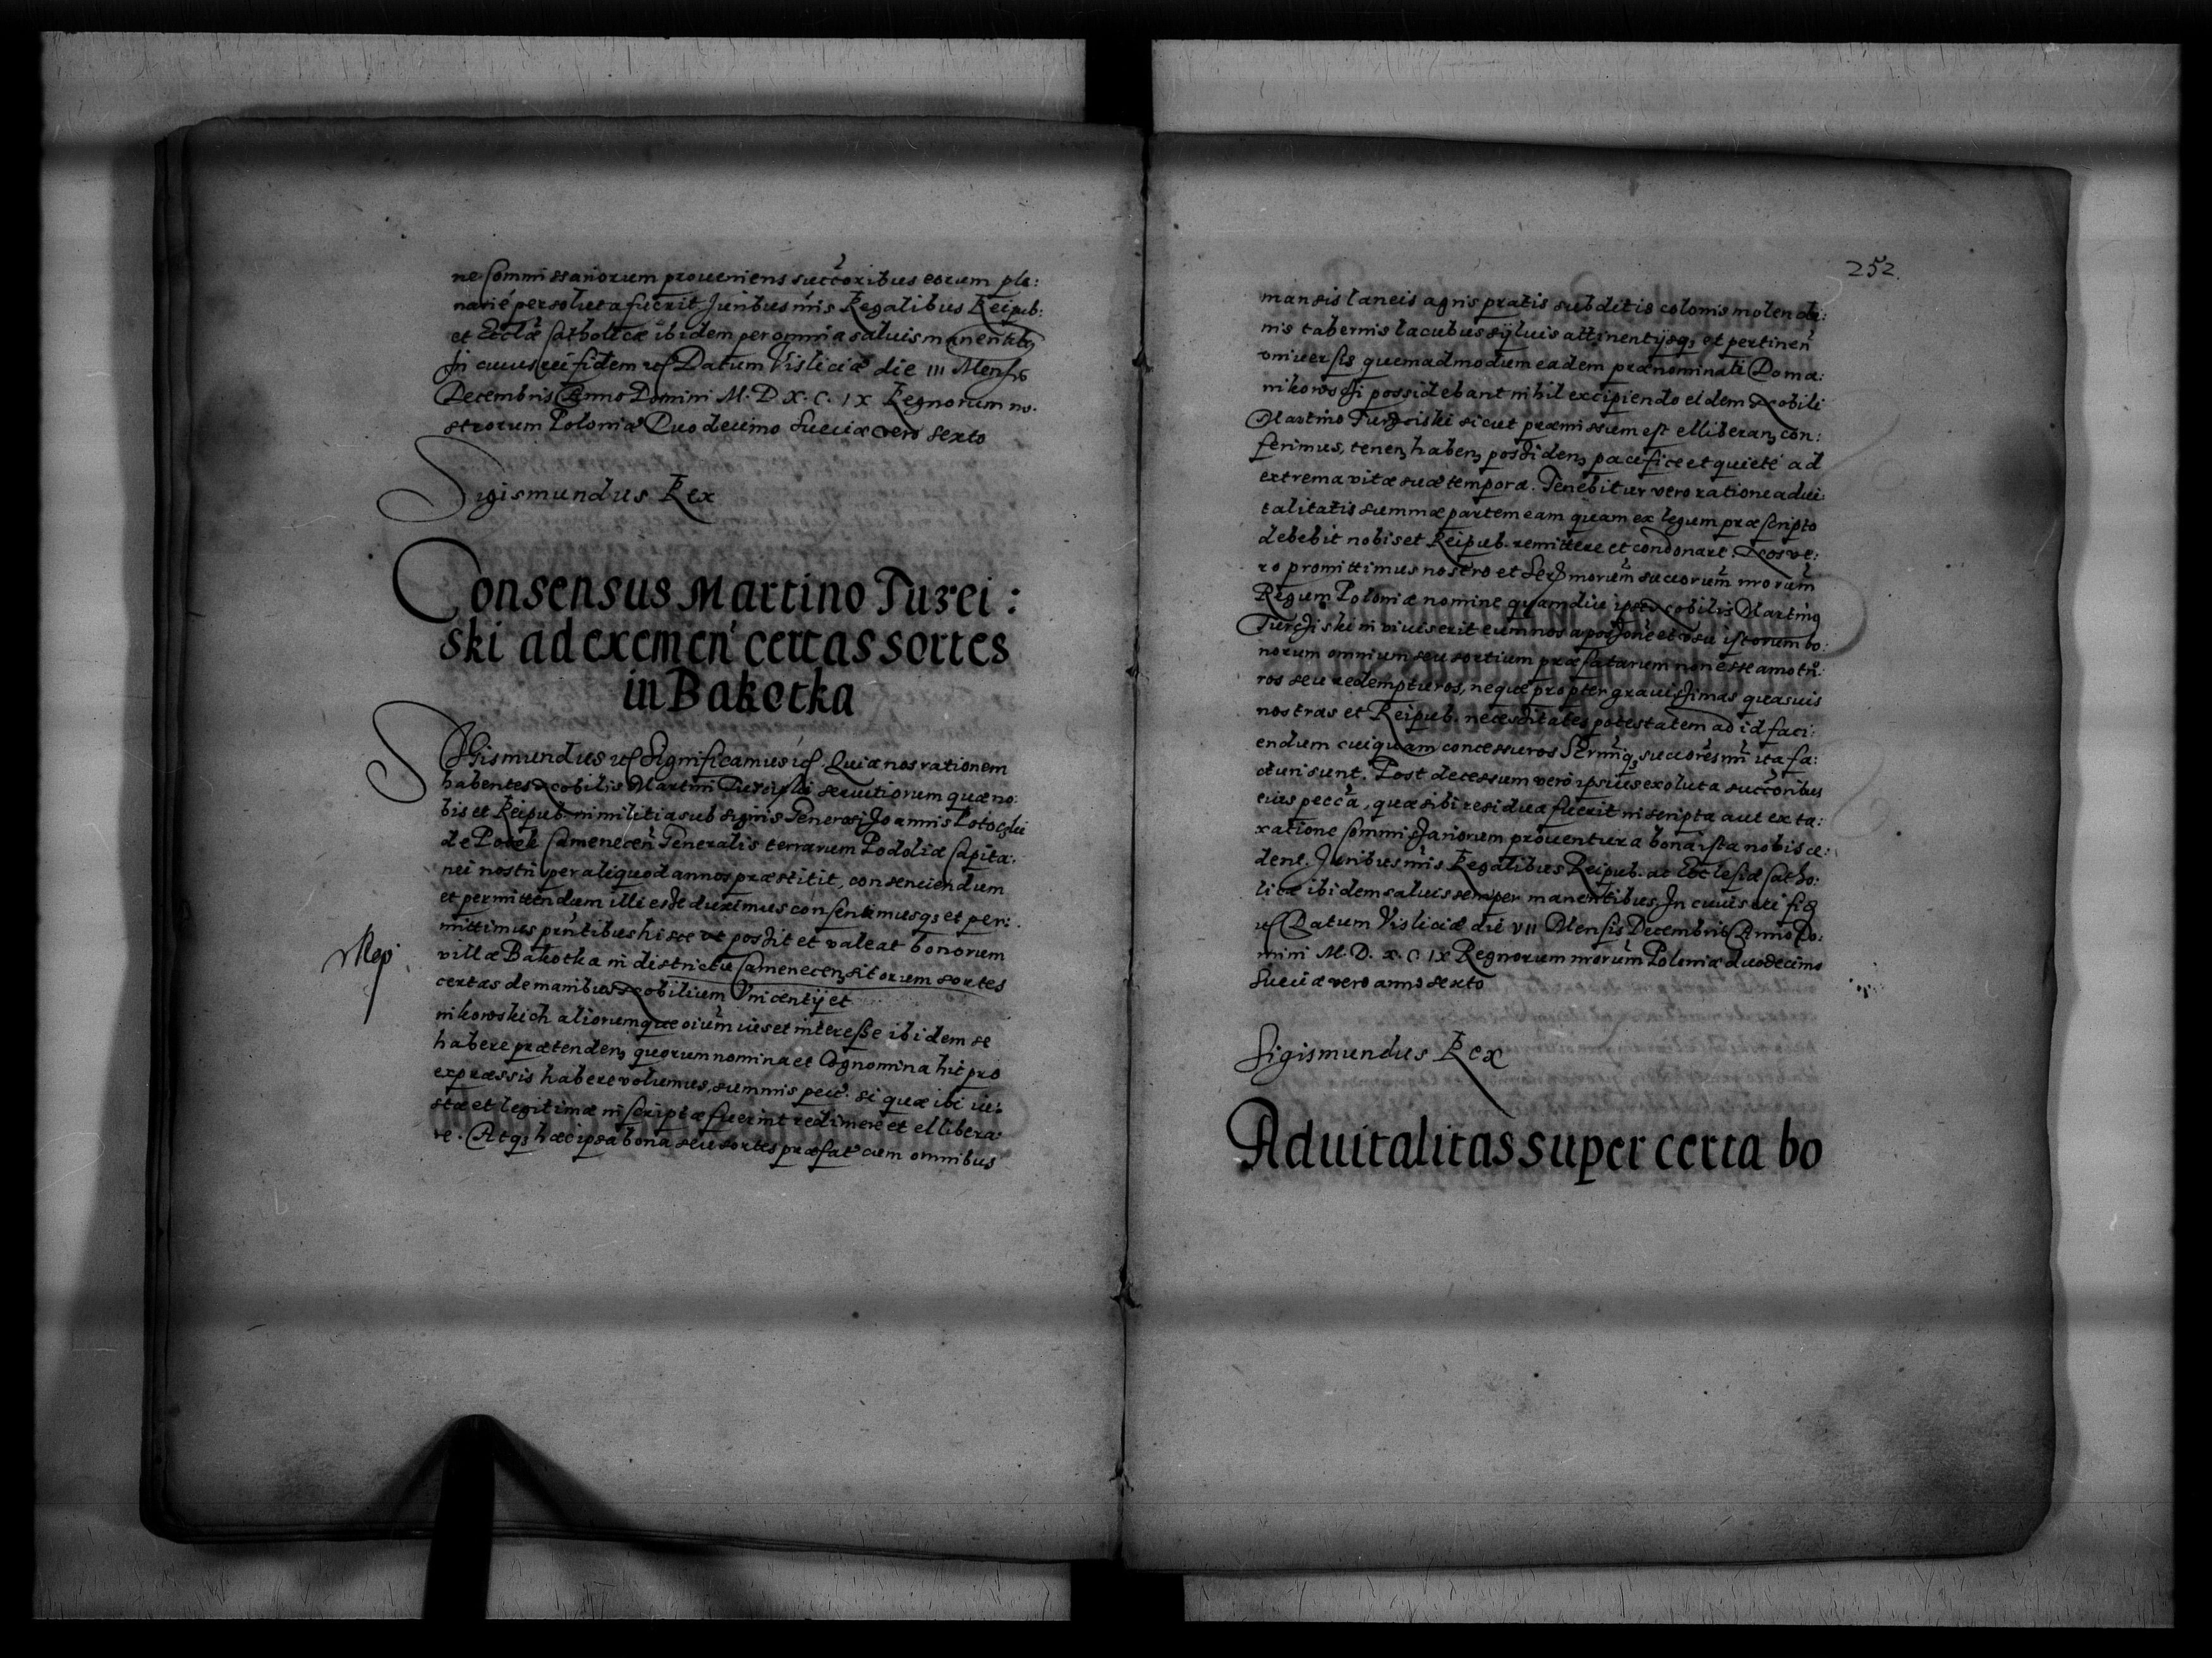 ne Commissariorum proueniens succoribus eorum ple:
narié persoluta fuerit Juribus nris Regalibus Reipub:
et Eccłæ Catholicæ ibidem per omnia saluis manentibq
In cuius rei fidem Datum Visliciæ die III Mensis
Decembris Anno Domini M. D X. C. IX Regnorum no.
strorum Poloniæ Duodecimo Sueciæ vero sexto
Sigismundus Rex
Consensus Martino Turei:
ski ad exemen certas sortes
in Bakotka
SIgismundus Significamus Quia nos rationem
habentes Nobilis Martini seruitiorum quæ no:
bis et Reipub. in militia sub signis Generosi Joannis Potoczki
de Potok Camenecen Generalis terrarum Podoliæ Capita:
nei nostri per aliquod annos præstitit, consenciendum
et permittendum illi esse duximus consentimusqȝ et per:
mittimus prntibus hisce vt possit et valeat bonorum
villæ Bakotka in districtu Camenecen sitorum sortes
certas de manibus Nobilium Vincentij et
nikowskich aliorumque oium ius et interesse ibidem se
habere prætendenȝ quorum nomina et Cognomina hic pro
expræssis habere volumus, summis pecc. si quæ ibi iu:
stæ et legitimæ inscriptæ fuerint redimere et ellibera:
re. Atqȝ hæc ipsa bona seu sortes præfat cum omnibus
252.
mansis laneis agris pratis subditis colonis molendi:
nis tabernis lacubus syluis attinentijsqȝ et pertinen
vniuersis quemadmodum eadem prænominati Doma:
nikowski possidebant nihil excipiendo eidem Nobili
Martino sicut præmissum est elliberanȝ con:
ferimus, tenenȝ habenȝ possidenȝ pacifice et quieté ad
extrema vitæ suæ tempora. Tenebitur vero ratione adui:
talitatis summæ partem eam quam ex legum præscripto
debebit nobis et Reipub. remittere et condonare. Nos ve:
ro promittimus nostro et Serenmorum succorum nrorum
Regum Poloniæ nomine quamdiu ipse Nobilis Martinq
in viuis erit eum nos a possione et vsu istorum bo:
norum omnium seu sortium præfatarum non esse amotu:
ros seu redempturos, neque propter grauissimas quasuis
nostras et Reipub. necessitates potestatem ad id faci:
endum cuiquam concessuros Sermiqȝ succores nri ita fa:
cturi sunt. Post decessum vero ipsius exoluta succoribus
eius pecca, quæ sibi residua fuerit inscripta aut ex ta:
xatione Commissariorum prouentura bona ista nobis ce:
dent. Juribus nris Regalibus Reipub. ac Ecclesiæ Catho:
licæ ibidem saluis semper manentibus. In cuius rei fid
Datum Visliciæ die VII Mensis Decembris Anno Do:
mini M. D. X. C IX Regnorum nrorum Poloniæ duodecimo
Sueciæ vero anno sexto
Sigismundus Rex
Aduitalitas super certa bo